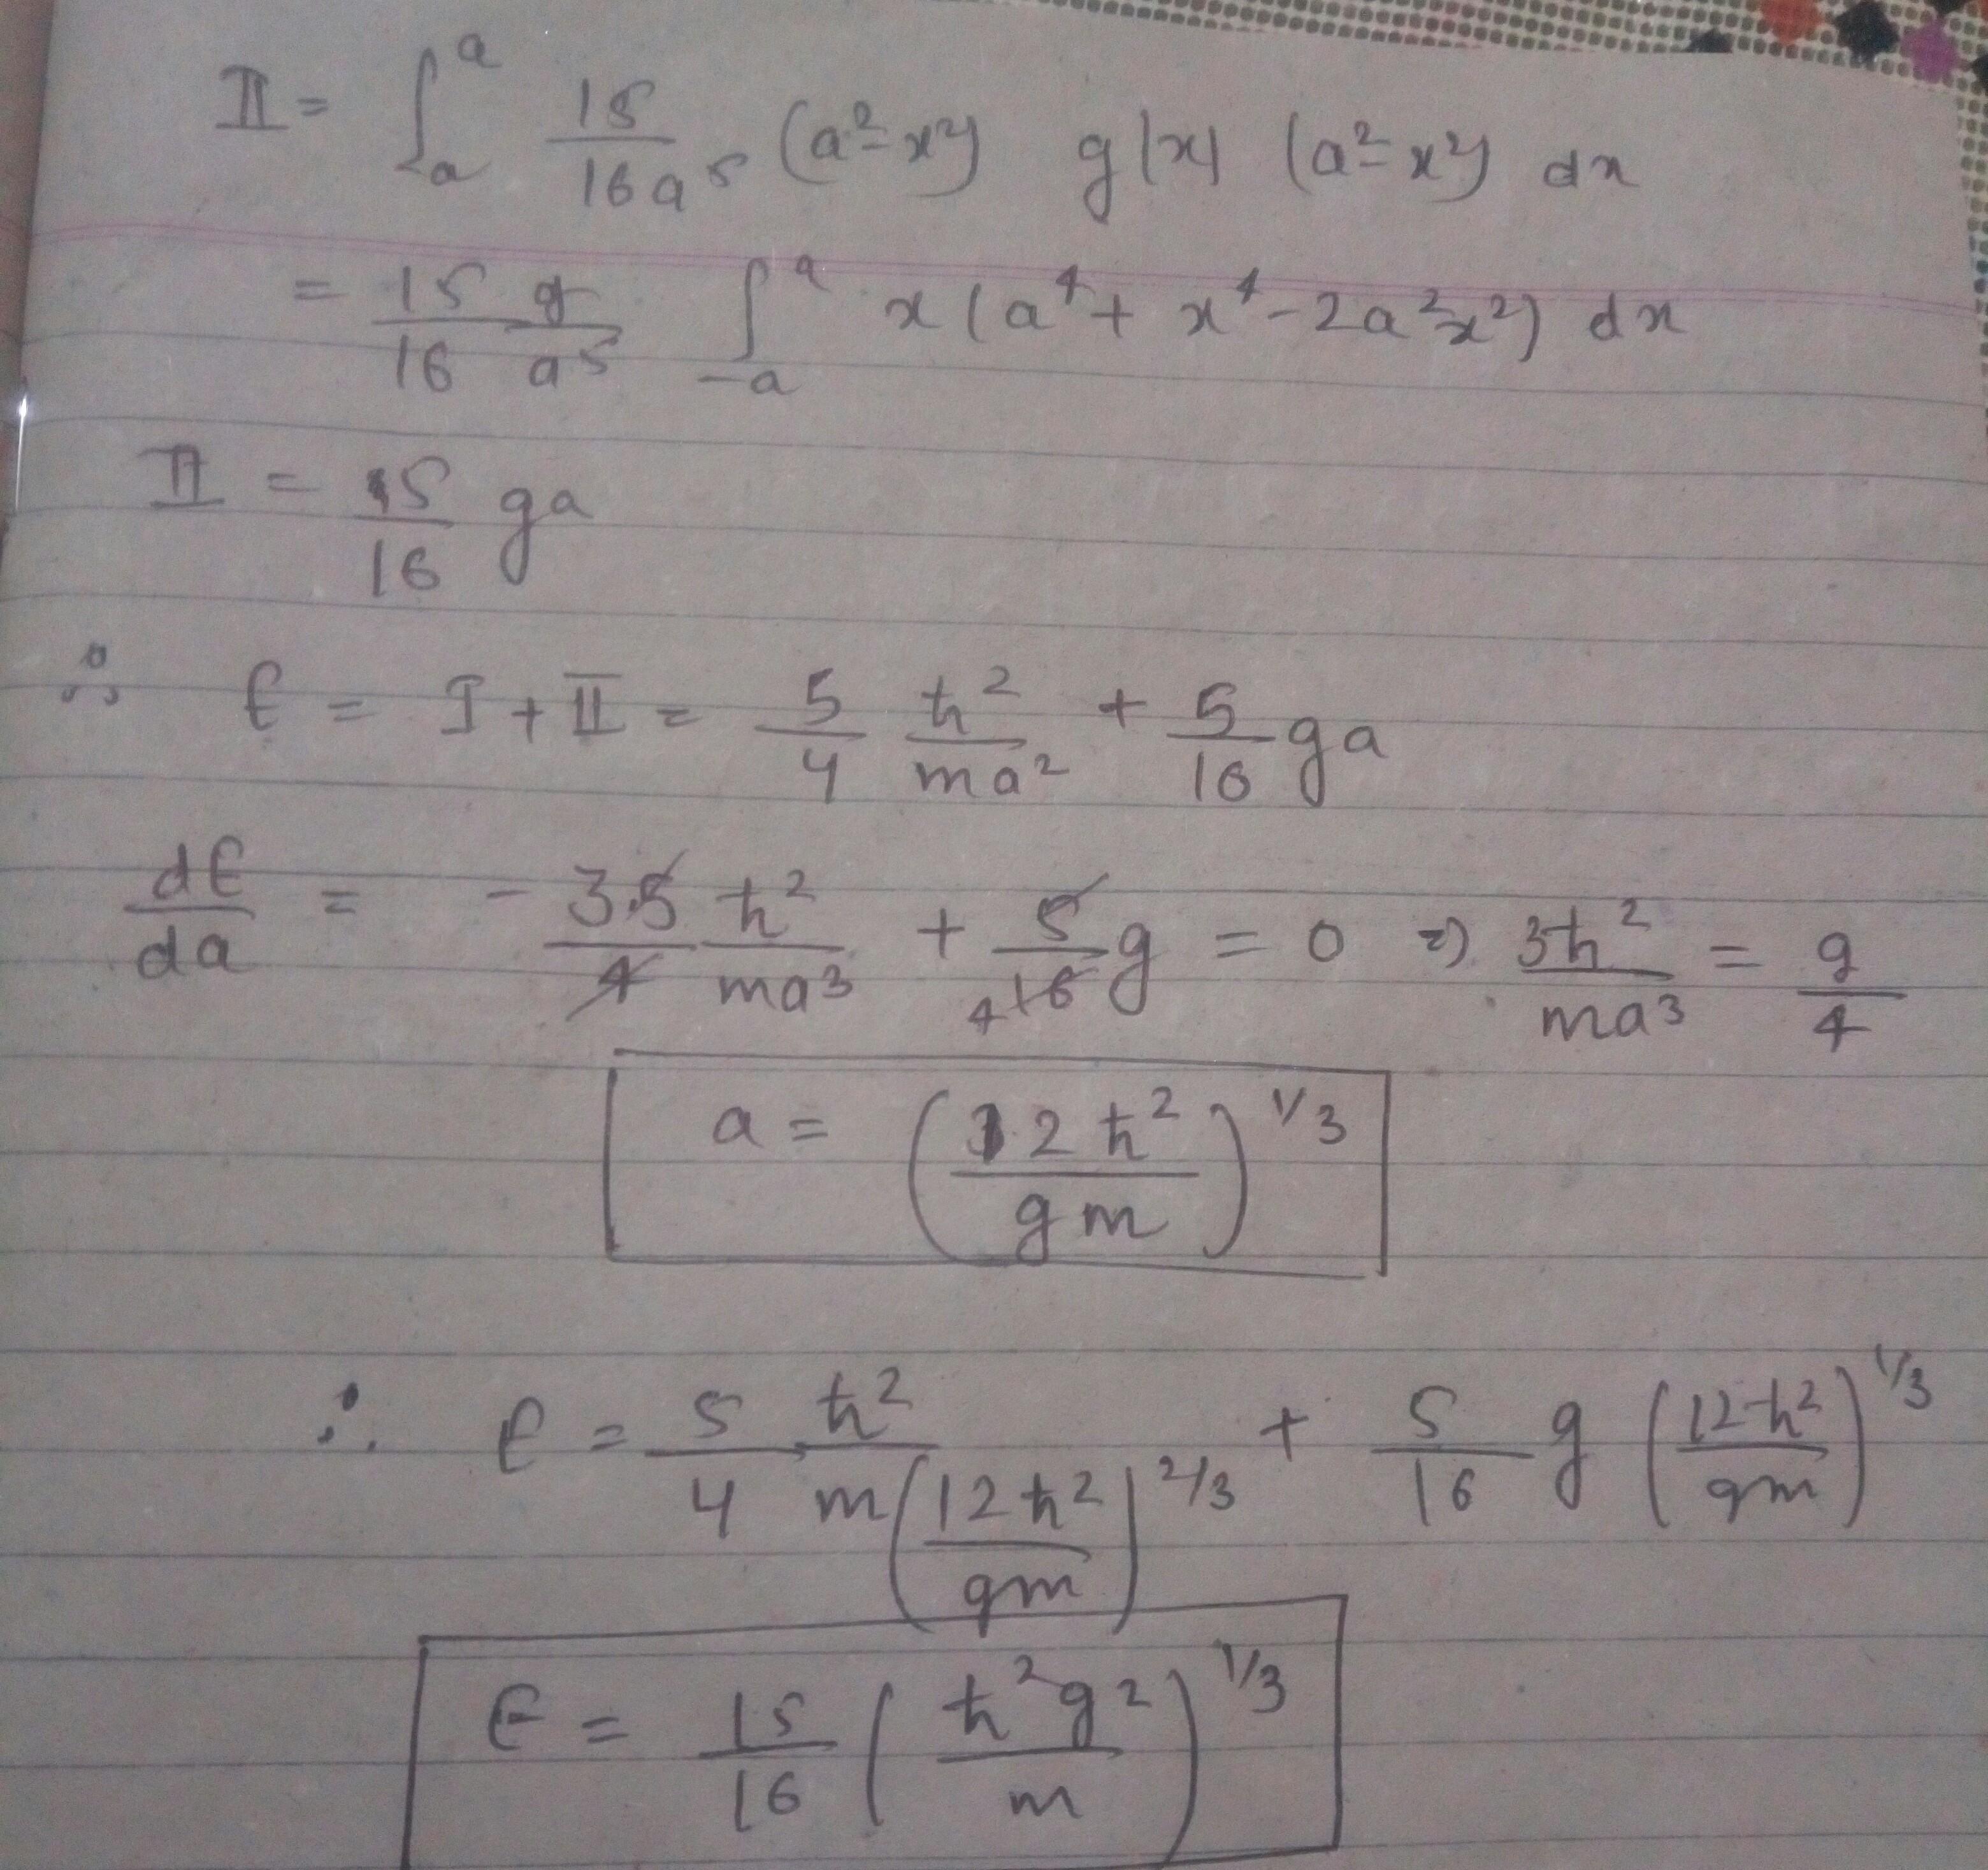 II = ∫_{-a}^{a} 15/16a⁵ (a²-x²) g|x| (a²-x²) dx
= 15/16 g/a⁵ ∫_{-a}^{a} x(a⁴ + x⁴ - 2a²x²) dx
II = 5/16 ga
∴ E = I + II = 5/4 ħ²/ma² + 5/16 ga
dE/da = - 3.5/4 ħ²/ma³ + 5/16 g = 0 ⇒ 3ħ²/ma³ = g/4
4
a = (12ħ²/gm)^{1/3}
∴ E = 5/4 ħ²/m(12ħ²/gm)^{2/3} + 5/16 g (12ħ²/gm)^{1/3}
E = 15/16 (ħ²g²/m)^{1/3}